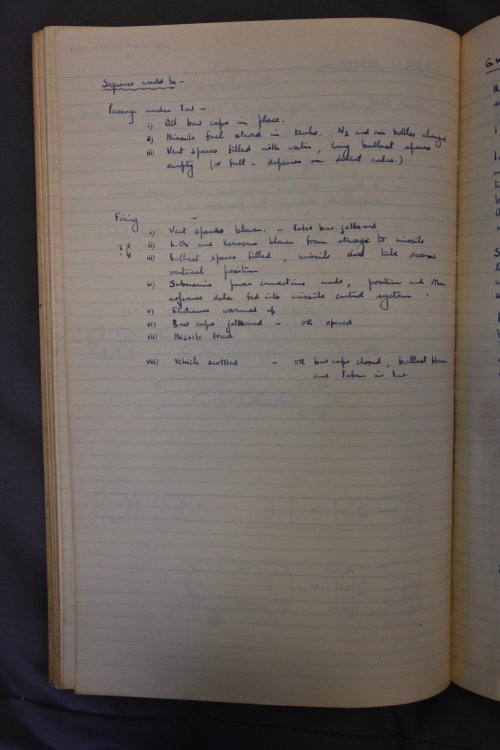 Sequence would be -
Passage under tow -
i) All bow caps in place.
ii) Missile fuel stored in tanks. N2 and air bottles charged
iii) Vent spaces filled with water, wing ballast spaces
empty (or full - depends on detail calcs.)
Firing -
i) Vent spaces blown. - false bow jettisoned
ii) L.Ox and Kerosene blown from storage to missile
iii) Ballast spaces filled, missile and tube assume
vertical position
iv) Submarine power connections made, position and other
reference data fed into missile control system.
v) Electronics warmed up
vi) Bow caps jettisoned - OR opened
vii) Missile fired
viii) Vehicle scuttled - OR bow caps closed, ballast blown
and taken in tow.